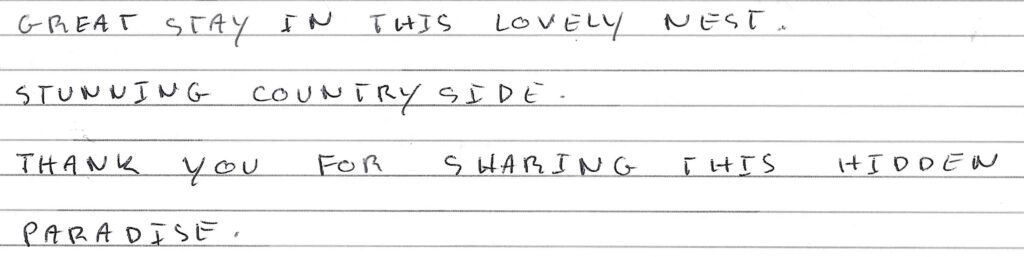 GREAT STAY IN THIS LOVELY NEST.
STUNNING COUNTRY SIDE.
THANK YOU FOR SHARING THIS HIDDEN
PARADISE.